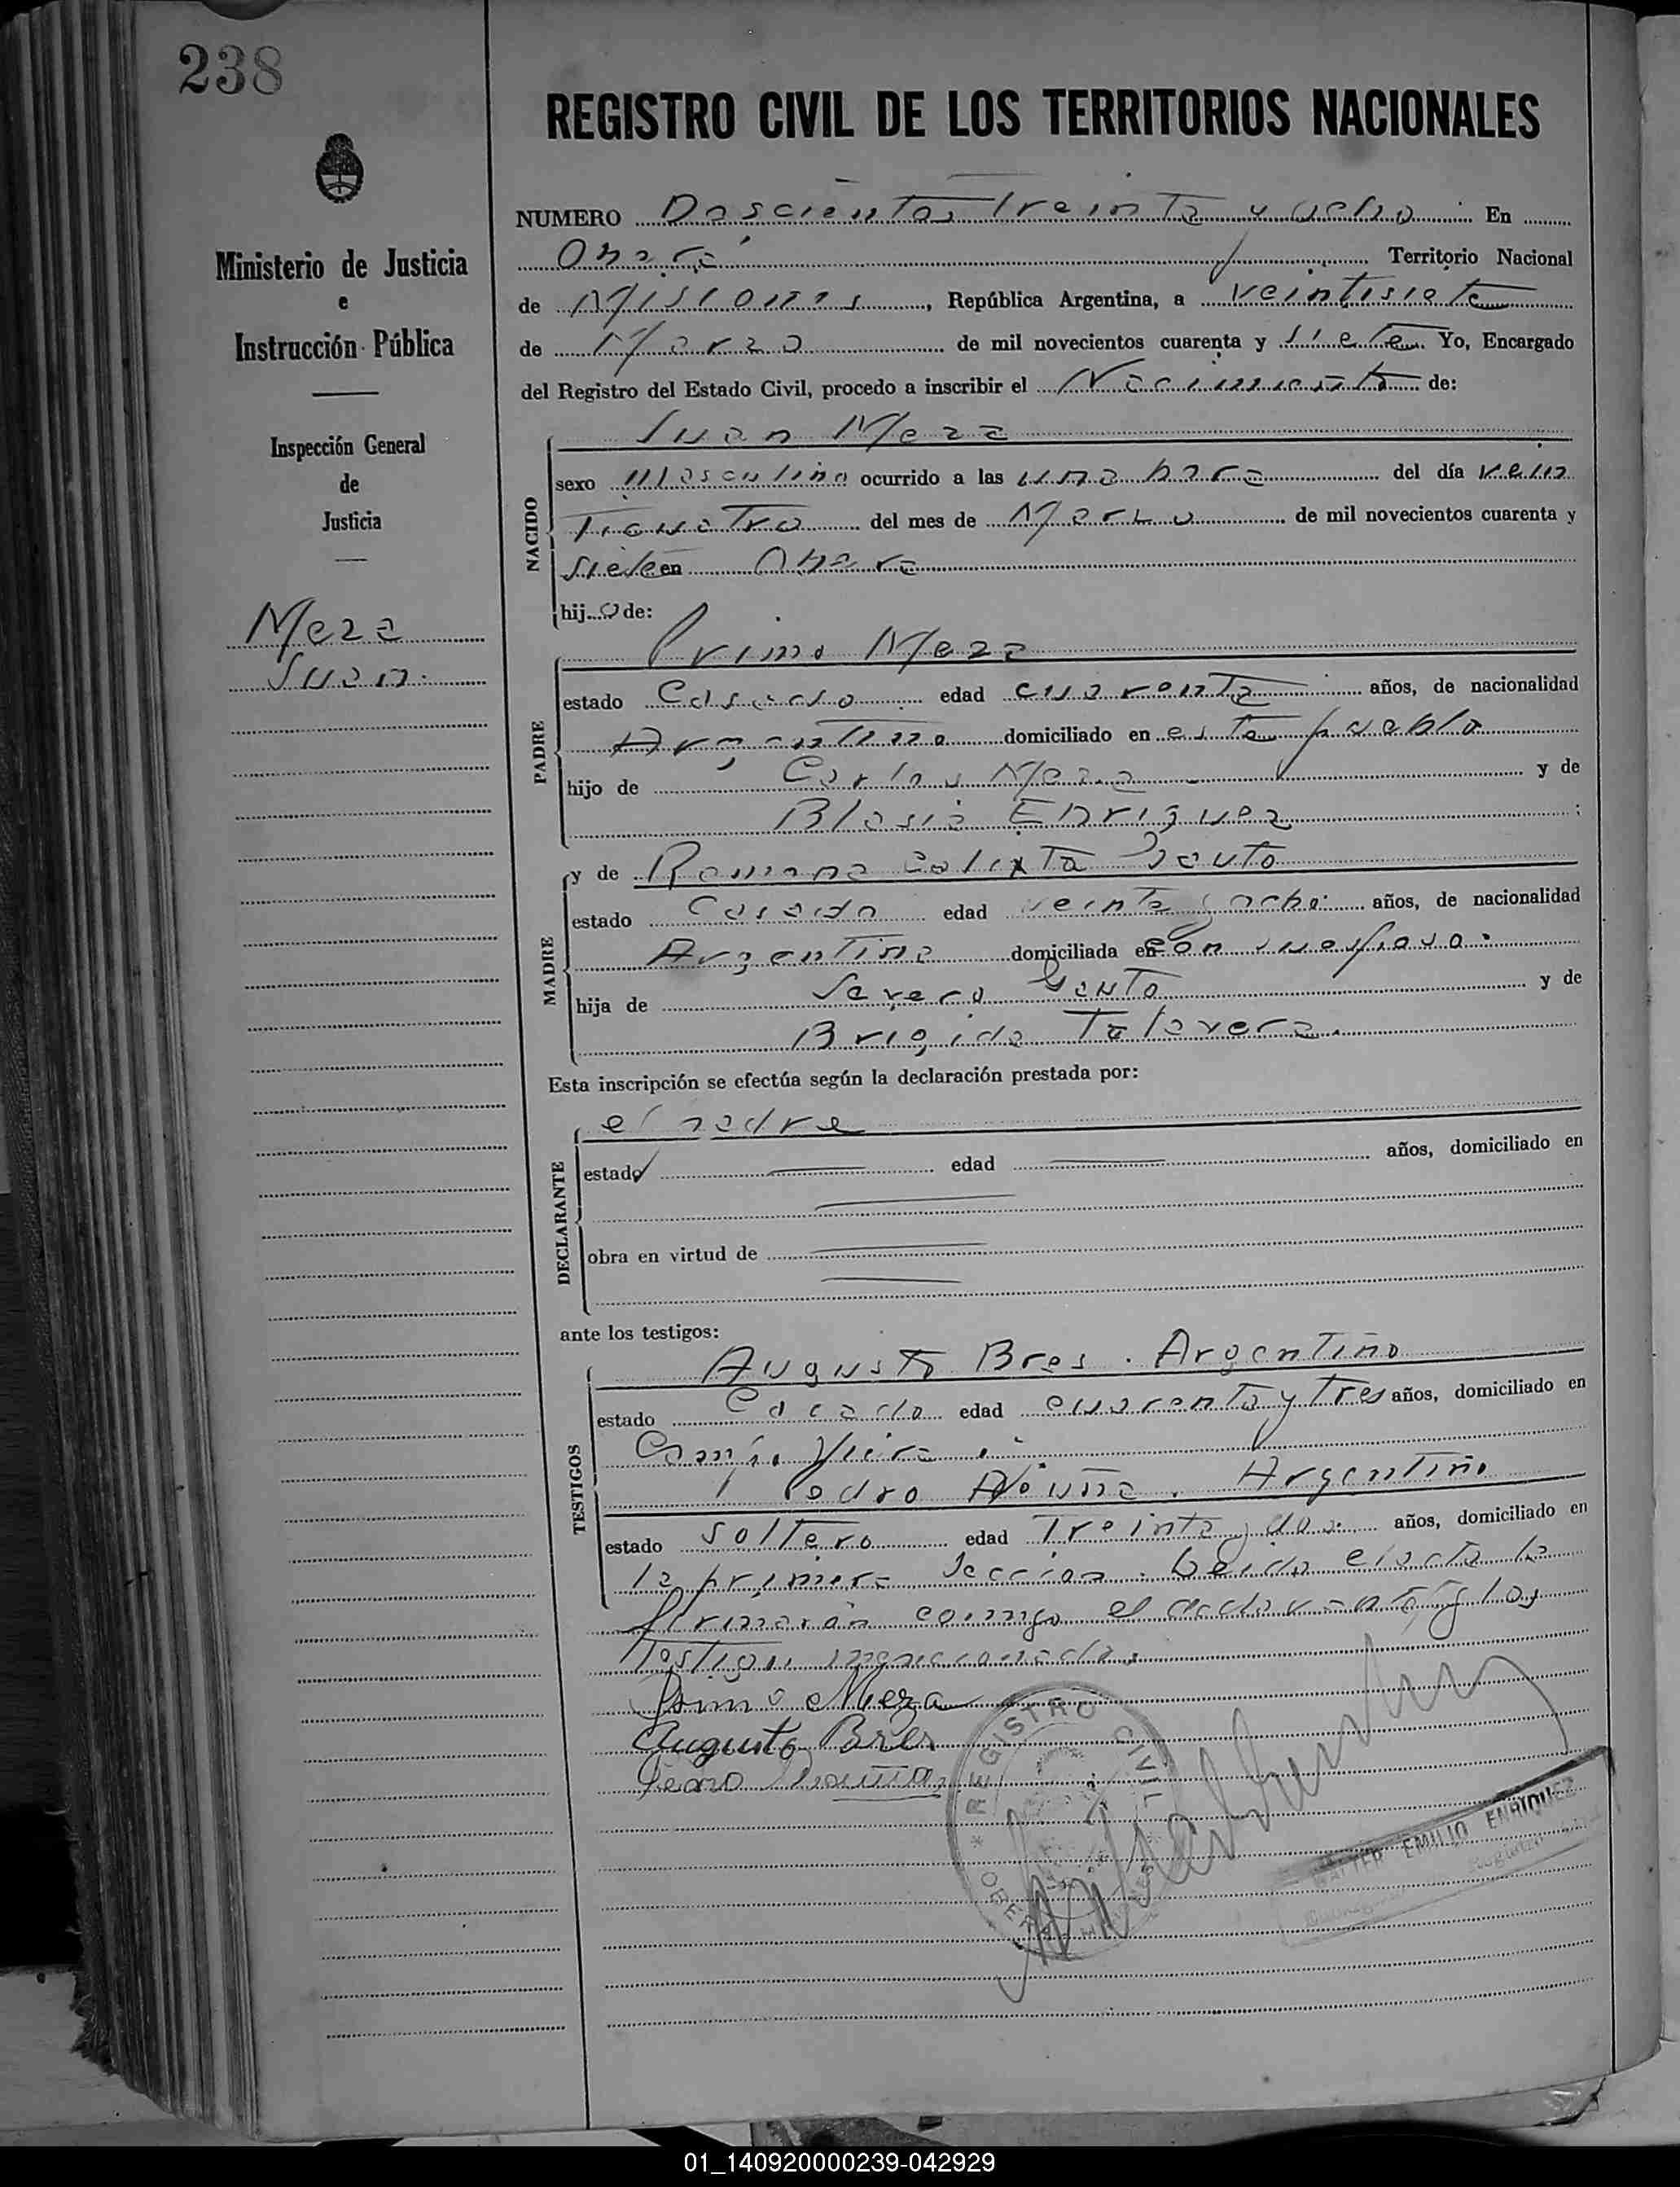 238
REGISTRO CIVIL DE LOS TERRITORIOS NACIONALES
Ministerio de Justicia
e
Instrucción Pública
Inspección General
de
Justicia
Meza
Juan.
NUMERO Doscientos treinta y ocho En
Oberá Territorio Nacional
de Misiones, República Argentina, a veintisiete
de Marzo de mil novecientos cuarenta y siete Yo, Encargado
del Registro del Estado Civil, procedo a inscribir el Nacimiento de:
NACIDO
Juan Meza
sexo masculino ocurrido a las una hora del día vein
ticuatro del mes de Marzo de mil novecientos cuarenta y
siete en Oberá
hij o de:
PADRE
Primo Meza
estado Casado edad cuarenta años, de nacionalidad
Argentino domiciliado en este pueblo
hijo de Carlos Meza y de
Blasia Enriquez ;
MADRE
y de Romana Calixta
estado Casada edad veinte y ocho años, de nacionalidad
Argentina domiciliada en con su esposo.
hija de Severo y de
Brigida Talavera.
Esta inscripción se efectúa según la declaración prestada por:
DECLARANTE
el padre
estado edad años, domiciliado en
obra en virtud de
ante los testigos:
TESTIGOS
Augusto Bres. Argentino
estado Casado edad cuarenta y tres años, domiciliado en
Campo Viera
Pedro Argentino
estado soltero edad treinta y dos años, domiciliado en
la primera Seccion. Leida el acta la
firmarán conmigo el declarante y los
testigos mencionados.
Primo Meza
Augusto Bres
Pedro
REGISTRO CIVIL
OBERA
WALTER EMILIO ENRIQUEZ
01_140920000239-042929